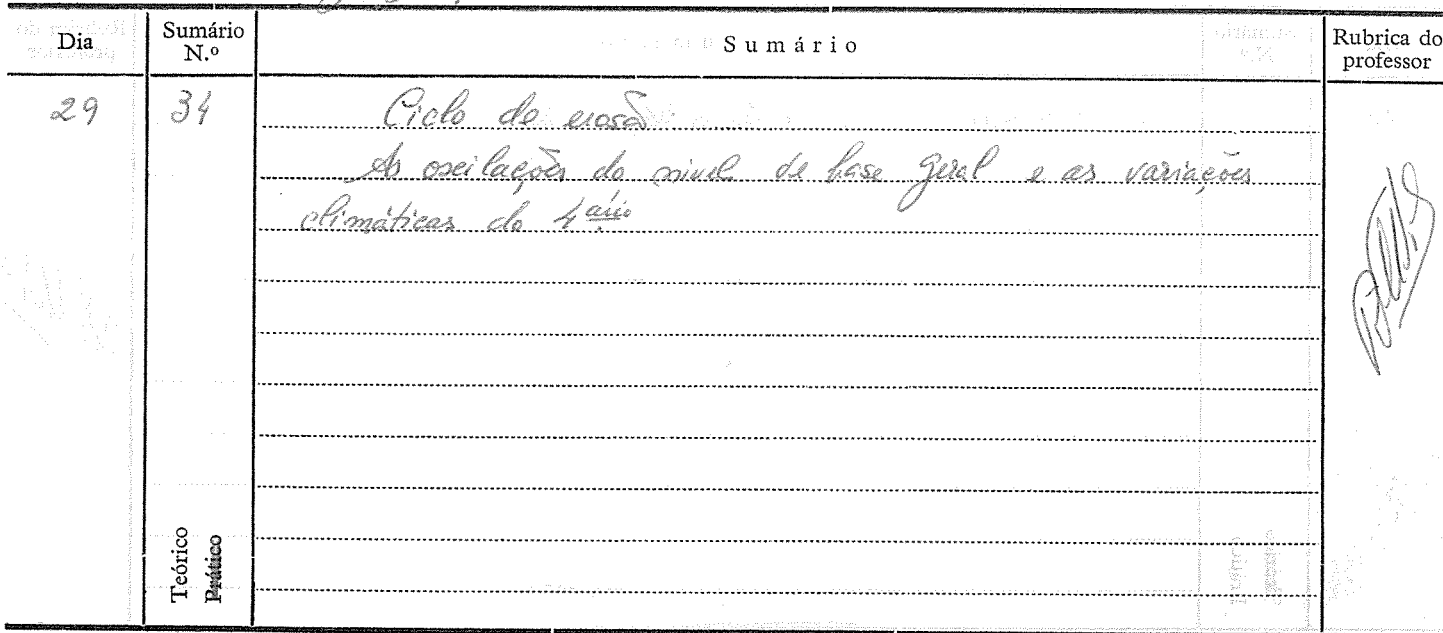 Dia
Sumário N.º
Sumário
Rubrica do professor
29
34
Ciclo de erosão
As oscilações do nivel de base geral e as variações
climáticas do 4ário
Teórico
Prático